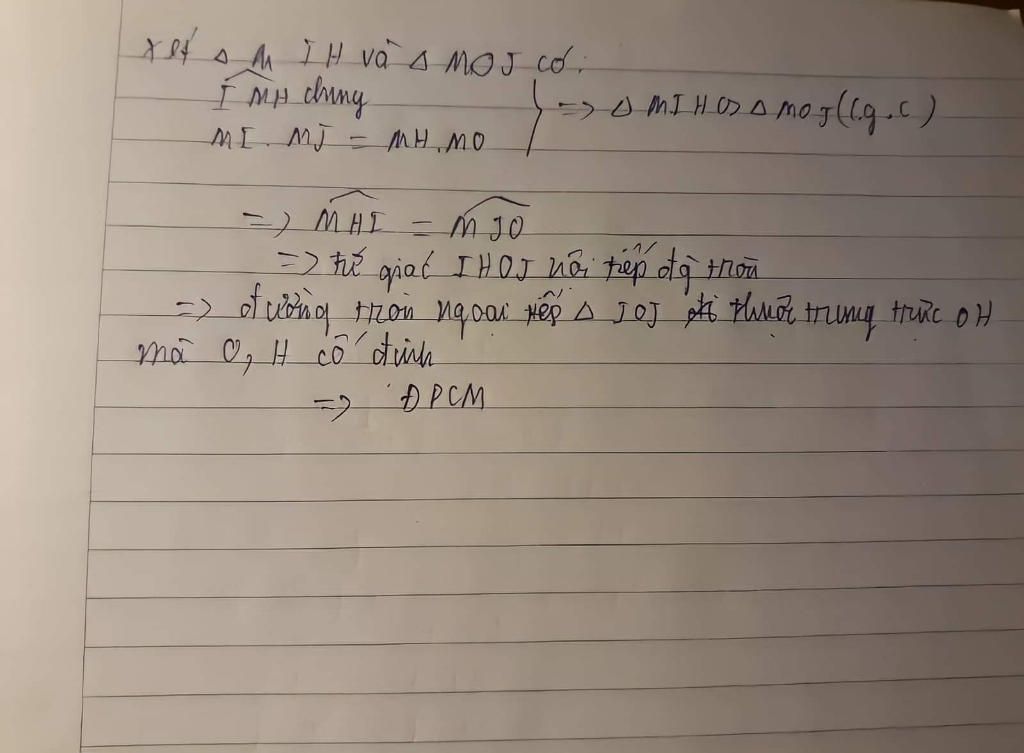 xét △ M I H và △ MOJ có:
IMH chung
MI. MJ = MH.MO
} => △ MIH ∽ △ MOJ (c.g.c)
=> MHI = MJO
=> tứ giác IHOJ nội tiếp đg tròn
=> đường tròn ngoại tiếp △ IOJ thuộc trung trực OH
mà O, H cố định
=> ĐPCM